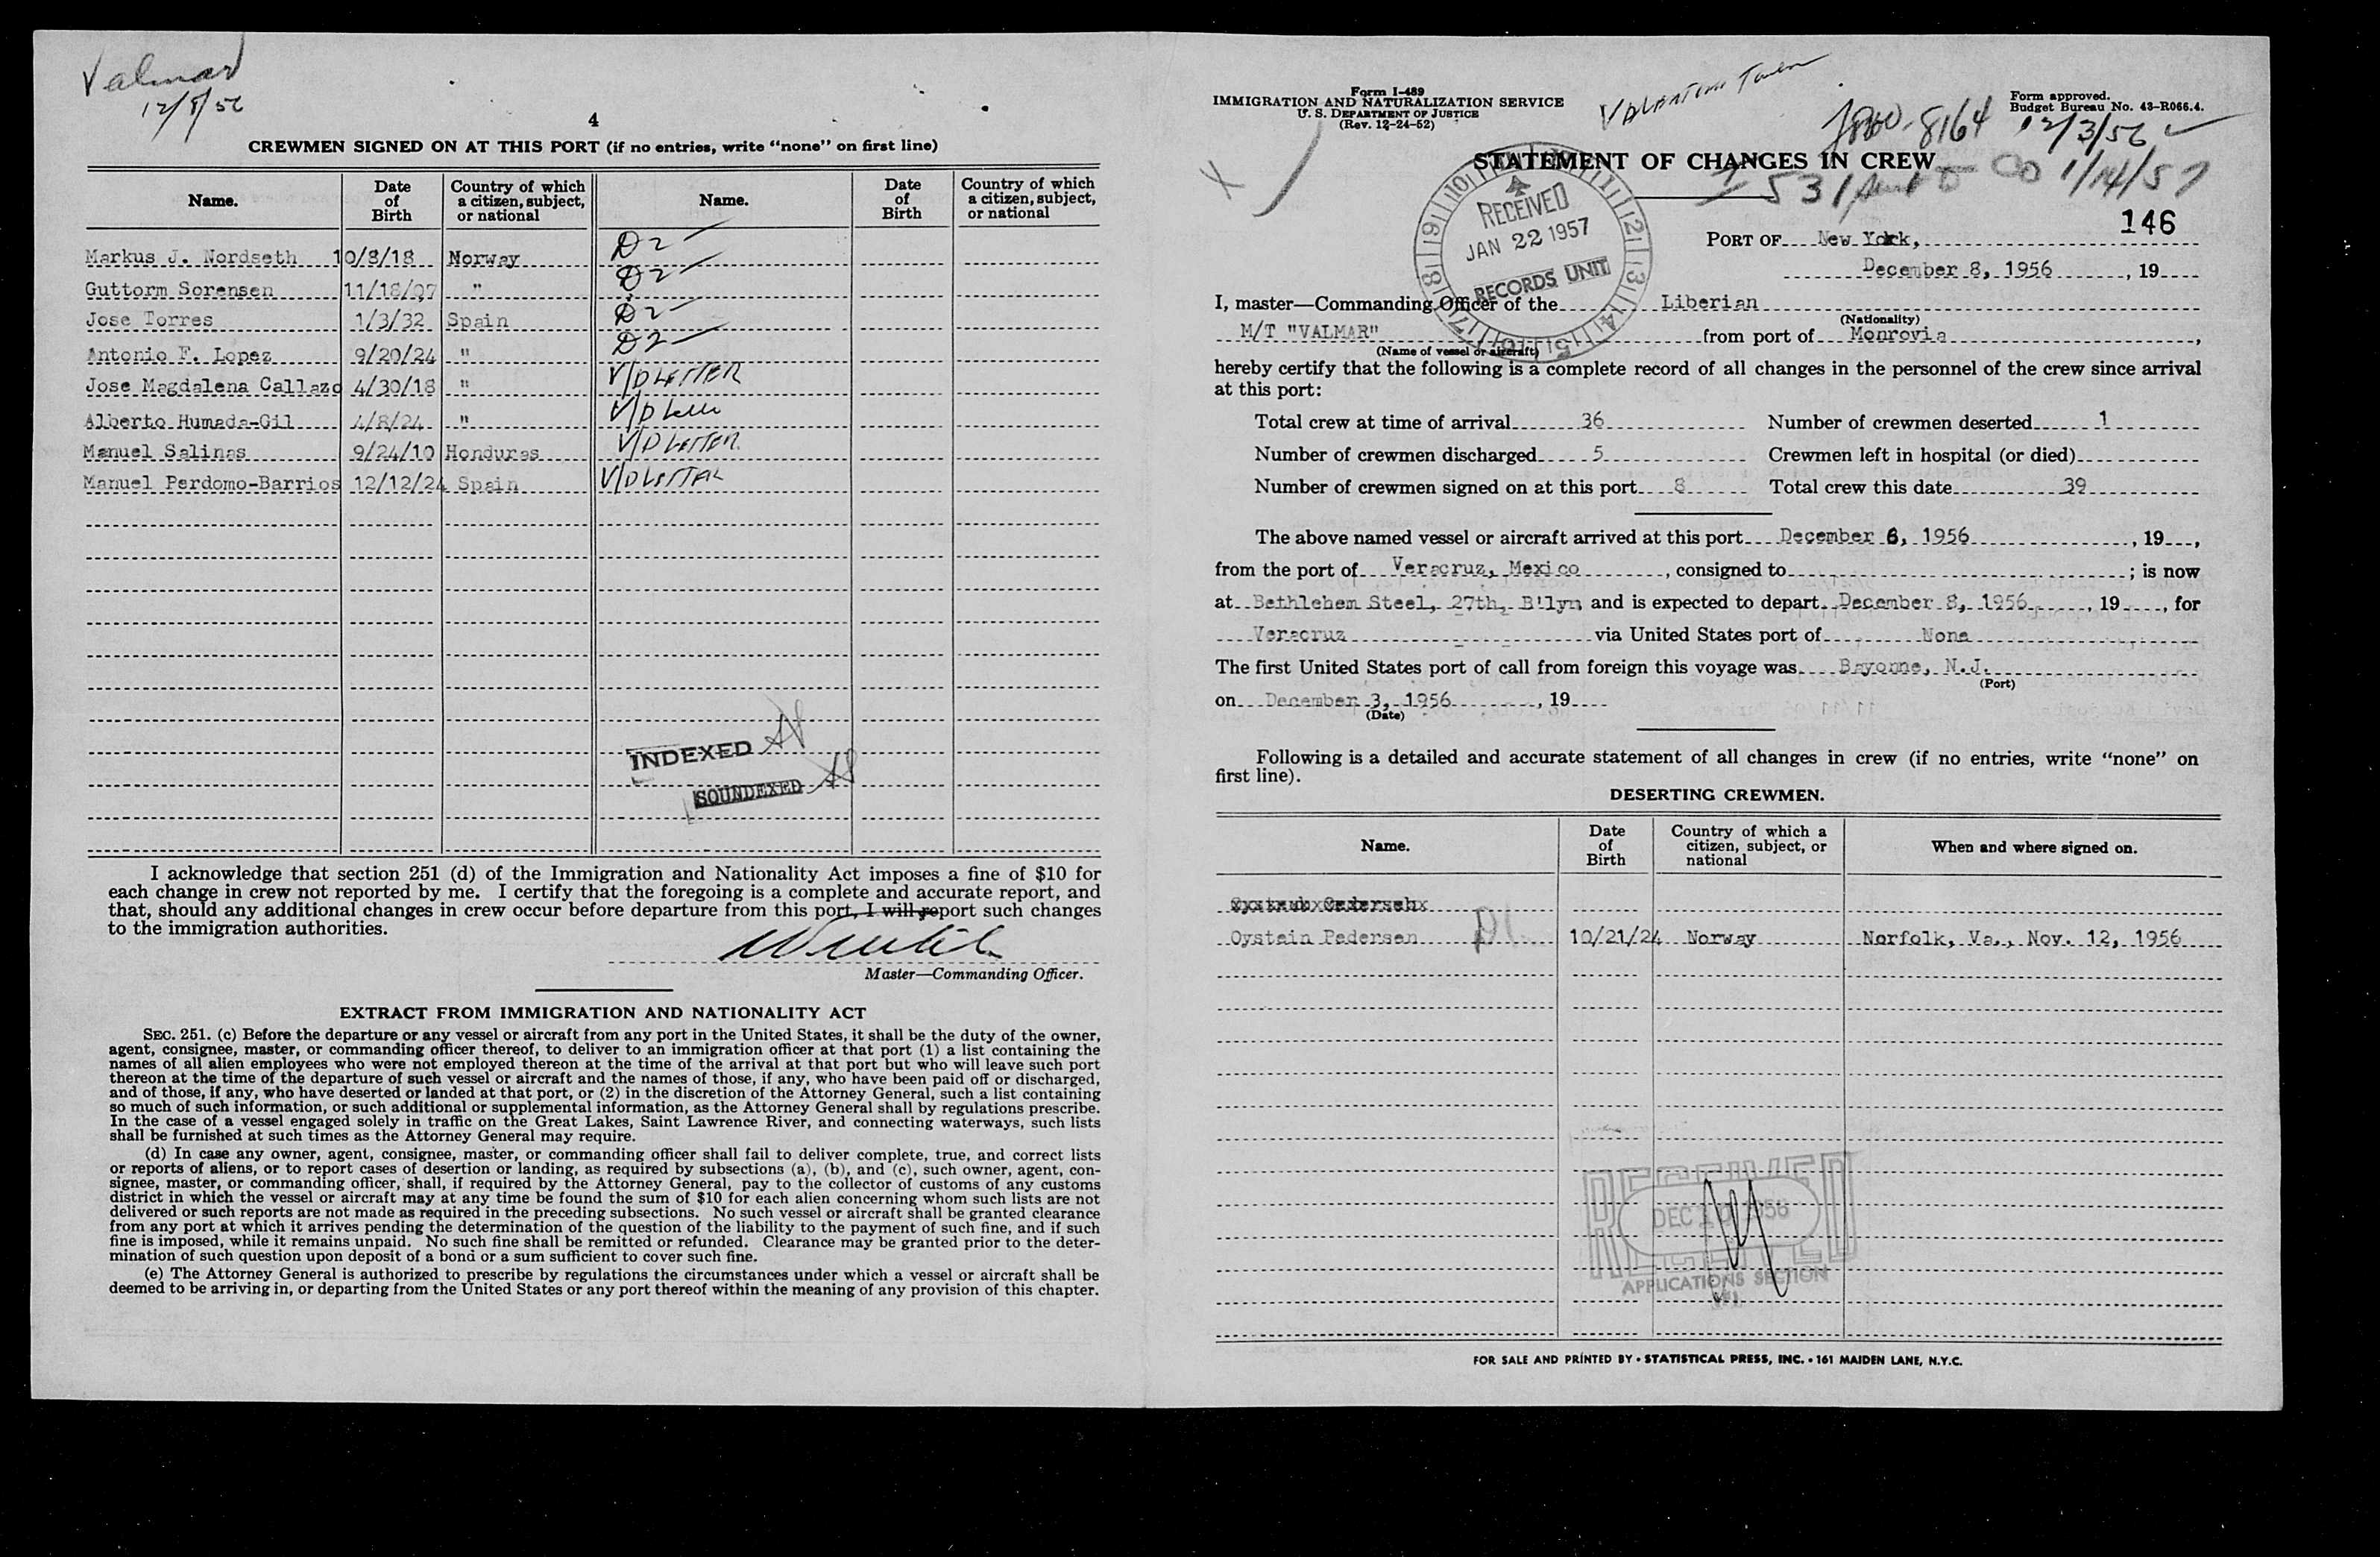 Valmar
12/8/56
4
CREWMEN SIGNED ON AT THIS PORT (if no entries, write "none" on first line)
Name. Date of Birth Country of which a citizen, subject, or national Name. Date of Birth Country of which a citizen, subject, or national
Markus J. Nordseth 10/8/18 Norway D2
Guttorm Sorensen 11/18/07 " D2
Jose Torres 1/3/32 Spain D2
Antonio F. Lopez 9/20/24 " D2
Jose Magdalena Callazo 4/30/18 " V/D LETTER
Alberto Humada-Gil 4/8/24 " V/D
Manuel Salinas 9/24/10 Honduras V/D LETTER
Manuel Perdomo-Barrios 12/12/24 Spain V/D LETTER
INDEXED
SOUNDEXED
I acknowledge that section 251 (d) of the Immigration and Nationality Act imposes a fine of $10 for
each change in crew not reported by me. I certify that the foregoing is a complete and accurate report, and
that, should any additional changes in crew occur before departure from this port, I will report such changes
to the immigration authorities.
Master—Commanding Officer.
EXTRACT FROM IMMIGRATION AND NATIONALITY ACT
SEC. 251. (c) Before the departure or any vessel or aircraft from any port in the United States, it shall be the duty of the owner,
agent, consignee, master, or commanding officer thereof, to deliver to an immigration officer at that port (1) a list containing the
names of all alien employees who were not employed thereon at the time of the arrival at that port but who will leave such port
thereon at the time of the departure of such vessel or aircraft and the names of those, if any, who have been paid off or discharged,
and of those, if any, who have deserted or landed at that port, or (2) in the discretion of the Attorney General, such a list containing
so much of such information, or such additional or supplemental information, as the Attorney General shall by regulations prescribe.
In the case of a vessel engaged solely in traffic on the Great Lakes, Saint Lawrence River, and connecting waterways, such lists
shall be furnished at such times as the Attorney General may require.
(d) In case any owner, agent, consignee, master, or commanding officer shall fail to deliver complete, true, and correct lists
or reports of aliens, or to report cases of desertion or landing, as required by subsections (a), (b), and (c), such owner, agent, con-
signee, master, or commanding officer, shall, if required by the Attorney General, pay to the collector of customs of any customs
district in which the vessel or aircraft may at any time be found the sum of $10 for each alien concerning whom such lists are not
delivered or such reports are not made as required in the preceding subsections. No such vessel or aircraft shall be granted clearance
from any port at which it arrives pending the determination of the question of the liability to the payment of such fine, and if such
fine is imposed, while it remains unpaid. No such fine shall be remitted or refunded. Clearance may be granted prior to the deter-
mination of such question upon deposit of a bond or a sum sufficient to cover such fine.
(e) The Attorney General is authorized to prescribe by regulations the circumstances under which a vessel or aircraft shall be
deemed to be arriving in, or departing from the United States or any port thereof within the meaning of any provision of this chapter.
Form I-489
IMMIGRATION AND NATURALIZATION SERVICE
U. S. DEPARTMENT OF JUSTICE
(Rev. 12-24-52)
Form approved.
Budget Bureau No. 43-R066.4.
8164 12/3/56
STATEMENT OF CHANGES IN CREW
531 1/14/57
RECEIVED
JAN 22 1957
RECORDS UNIT
146
PORT OF New York,
December 8, 1956, 19
I, master—Commanding Officer of the Liberian
(Nationality)
M/T "VALMAR" from port of Monrovia,
(Name of vessel or aircraft)
hereby certify that the following is a complete record of all changes in the personnel of the crew since arrival
at this port:
Total crew at time of arrival 36 Number of crewmen deserted 1
Number of crewmen discharged 5 Crewmen left in hospital (or died)
Number of crewmen signed on at this port 8 Total crew this date 39
The above named vessel or aircraft arrived at this port December 6, 1956, 19,
from the port of Veracruz, Mexico, consigned to ; is now
at Bethlehem Steel, 27th, B'lyn and is expected to depart December 8, 1956, 19, for
Veracruz via United States port of None
The first United States port of call from foreign this voyage was Bayonne, N.J.
(Port)
on December 3, 1956, 19
(Date)
Following is a detailed and accurate statement of all changes in crew (if no entries, write "none" on
first line).
DESERTING CREWMEN.
Name. Date of Birth Country of which a citizen, subject, or national When and where signed on.
Oystein Pedersen 10/21/24 Norway Norfolk, Va., Nov. 12, 1956
RECEIVED
DEC 10 1956
APPLICATIONS SECTION
FOR SALE AND PRINTED BY • STATISTICAL PRESS, INC. • 161 MAIDEN LANE, N.Y.C.